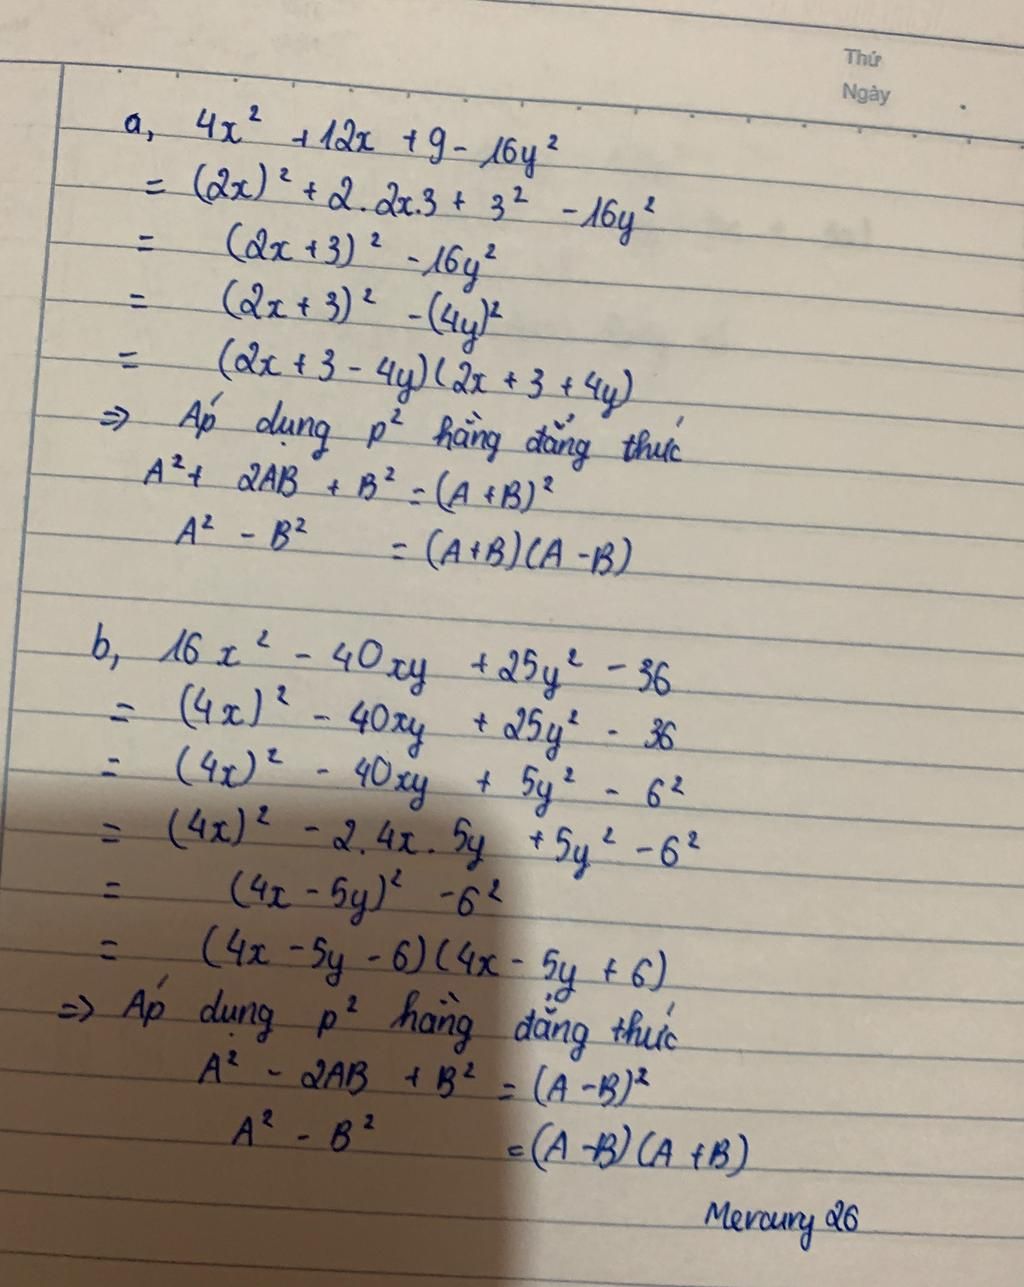 Thứ
Ngày
a, 4x² + 12x + 9 - 16y²
= (2x)² + 2.2x.3 + 3² - 16y²
= (2x + 3)² - 16y²
= (2x + 3)² - (4y)²
= (2x + 3 - 4y)(2x + 3 + 4y)
=> Áp dụng p² hằng đẳng thức
A² + 2AB + B² = (A + B)²
A² - B² = (A + B)(A - B)
b, 16x² - 40xy + 25y² - 36
= (4x)² - 40xy + 25y² - 36
= (4x)² - 40xy + 5y² - 6²
= (4x)² - 2.4x.5y + 5y² - 6²
= (4x - 5y)² - 6²
= (4x - 5y - 6)(4x - 5y + 6)
=> Áp dụng p² hằng đẳng thức
A² - 2AB + B² = (A - B)²
A² - B² = (A - B)(A + B)
Mercury 26